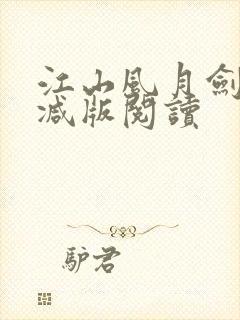 江山風月劍
減版閱讀
驴君